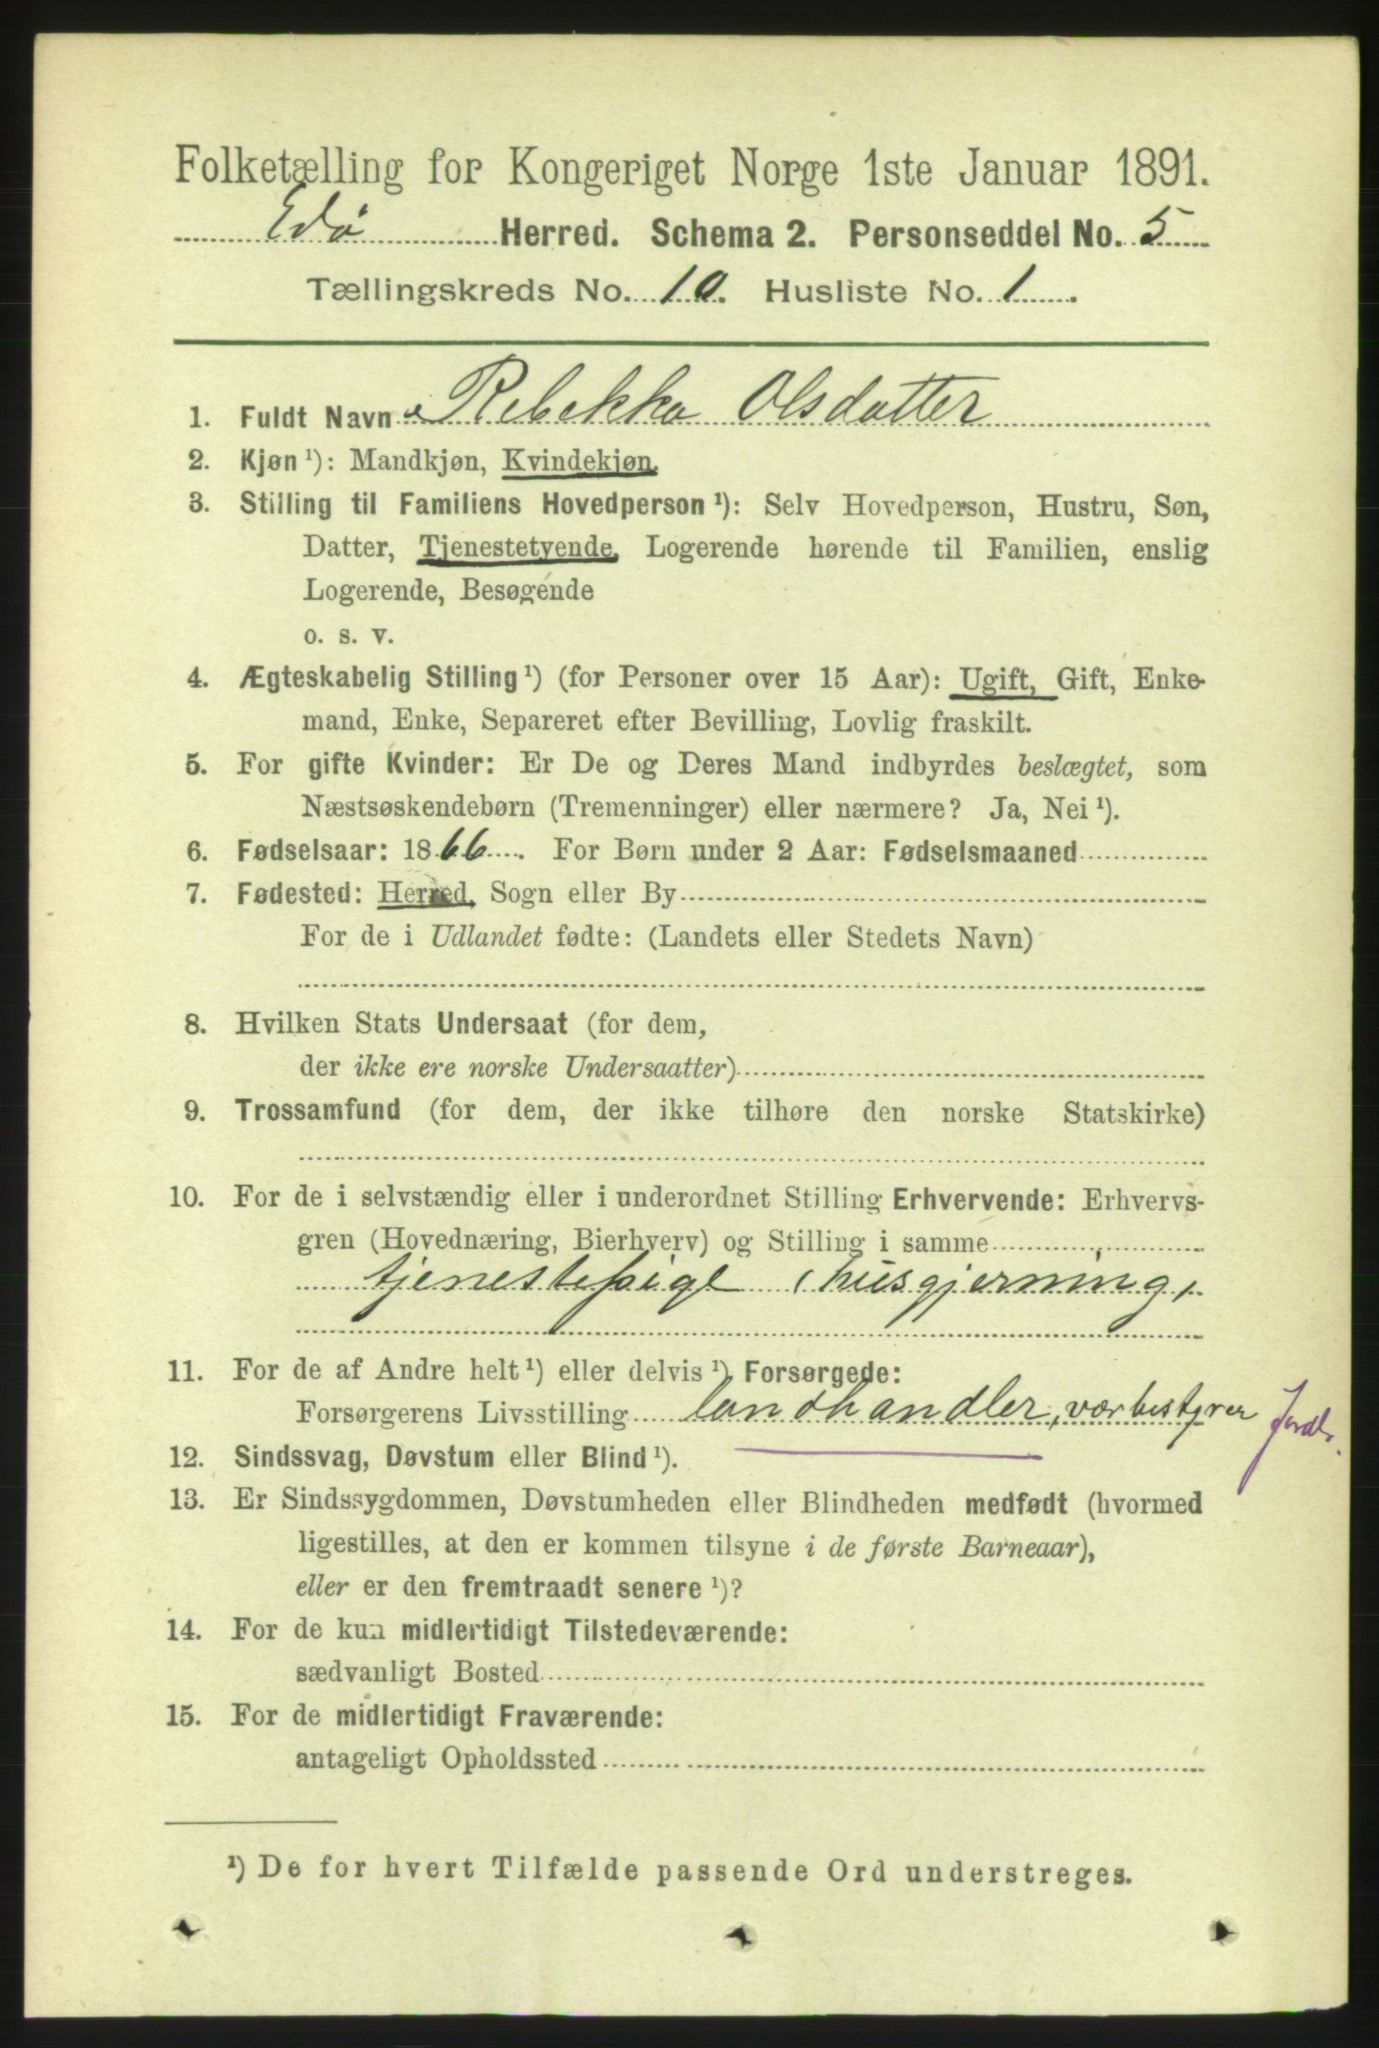 Folketælling for Kongeriget Norge 1ste Januar 1891.
Edø Herred. Schema 2. Personseddel No. 5
Tællingskreds No. 10. Husliste No. 1.
1. Fuldt Navn Rebekka Olsdatter
2. Kjøn ¹): Mandkjøn, Kvindekjøn.
3. Stilling til Familiens Hovedperson ¹): Selv Hovedperson, Hustru, Søn,
Datter, Tjenestetyende, Logerende hørende til Familien, enslig
Logerende, Besøgende
o. s. v.
4. Ægteskabelig Stilling ¹) (for Personer over 15 Aar): Ugift, Gift, Enke-
mand, Enke, Separeret efter Bevilling, Lovlig fraskilt.
5. For gifte Kvinder: Er De og Deres Mand indbyrdes beslægtet, som
Næstsøskendebørn (Tremenninger) eller nærmere? Ja, Nei ¹).
6. Fødselsaar: 1866. For Børn under 2 Aar: Fødselsmaaned
7. Fødested: Herred, Sogn eller By
For de i Udlandet fødte: (Landets eller Stedets Navn)
8. Hvilken Stats Undersaat (for dem,
der ikke ere norske Undersaatter)
9. Trossamfund (for dem, der ikke tilhøre den norske Statskirke)
10. For de i selvstændig eller i underordnet Stilling Erhvervende: Erhvervs-
gren (Hovednæring, Bierhverv) og Stilling i samme
tjenestepige, husgjerning,
11. For de af Andre helt ¹) eller delvis ¹) Forsørgede:
Forsørgerens Livsstilling landhandler, værbestyrer
12. Sindssvag, Døvstum eller Blind ¹).
13. Er Sindssygdommen, Døvstumheden eller Blindheden medfødt (hvormed
ligestilles, at den er kommen tilsyne i de første Barneaar),
eller er den fremtraadt senere ¹)?
14. For de kun midlertidigt Tilstedeværende:
sædvanligt Bosted
15. For de midlertidigt Fraværende:
antageligt Opholdssted
¹) De for hvert Tilfælde passende Ord understreges.